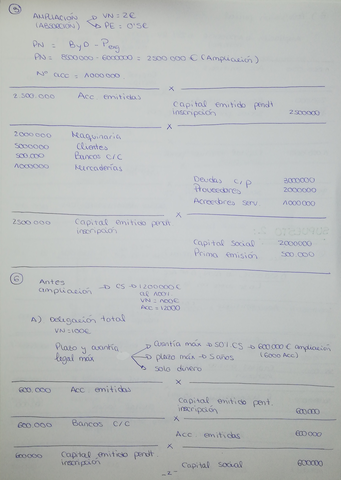 5
AMPLIACIÓN → VN = 2€
(ABSORCIÓN) → PE = 0'5€
PN = ByD - Pexig
PN = 8500000 - 6000000 = 2500.000 € (Ampliación)
Nº acc = 1000000
x
2.500.000 Acc. emitidas
Capital emitido pendt. inscripción 2500000
x
2000000 Maquinaria
5000000 Clientes
500.000 Bancos c/c
1000000 Mercaderías
Deudas c/p 3000000
Proveedores 2000000
Acreedores serv 1000000
x
2500.000 Capital emitido pendt.
inscripción
Capital social 2000000
Prima emisión 500.000
6
Antes
ampliación → CS → 1200000€
al 100%
VN = 100€
Acc = 12000
A) Delegación total
VN = 100€
Plazo y cuantía
legal máx
cuantía máx → 50% CS → 600.000 € ampliación
(6000 Acc)
plazo máx → 5 años
solo dinero
x
600.000 Acc emitidas
Capital emitido pent.
inscripción 600000
x
600.000 Bancos c/c
Acc emitidas 600000
x
600000 Capital emitido pendt.
inscripción
Capital social 600000
-2-